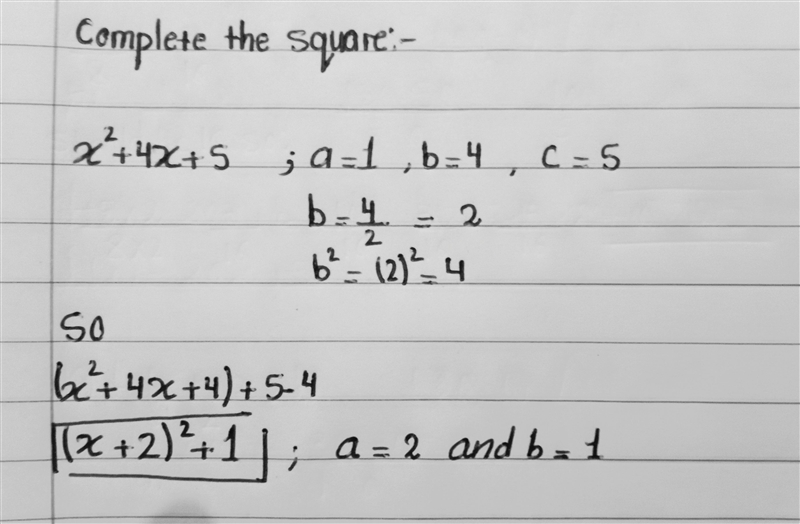 Complete the square:-
x²+4x+5 ; a=1 , b=4 , c=5
b=4/2 = 2
b²=(2)²=4
So
(x²+4x+4)+5-4
(x+2)²+1 ; a=2 and b=1